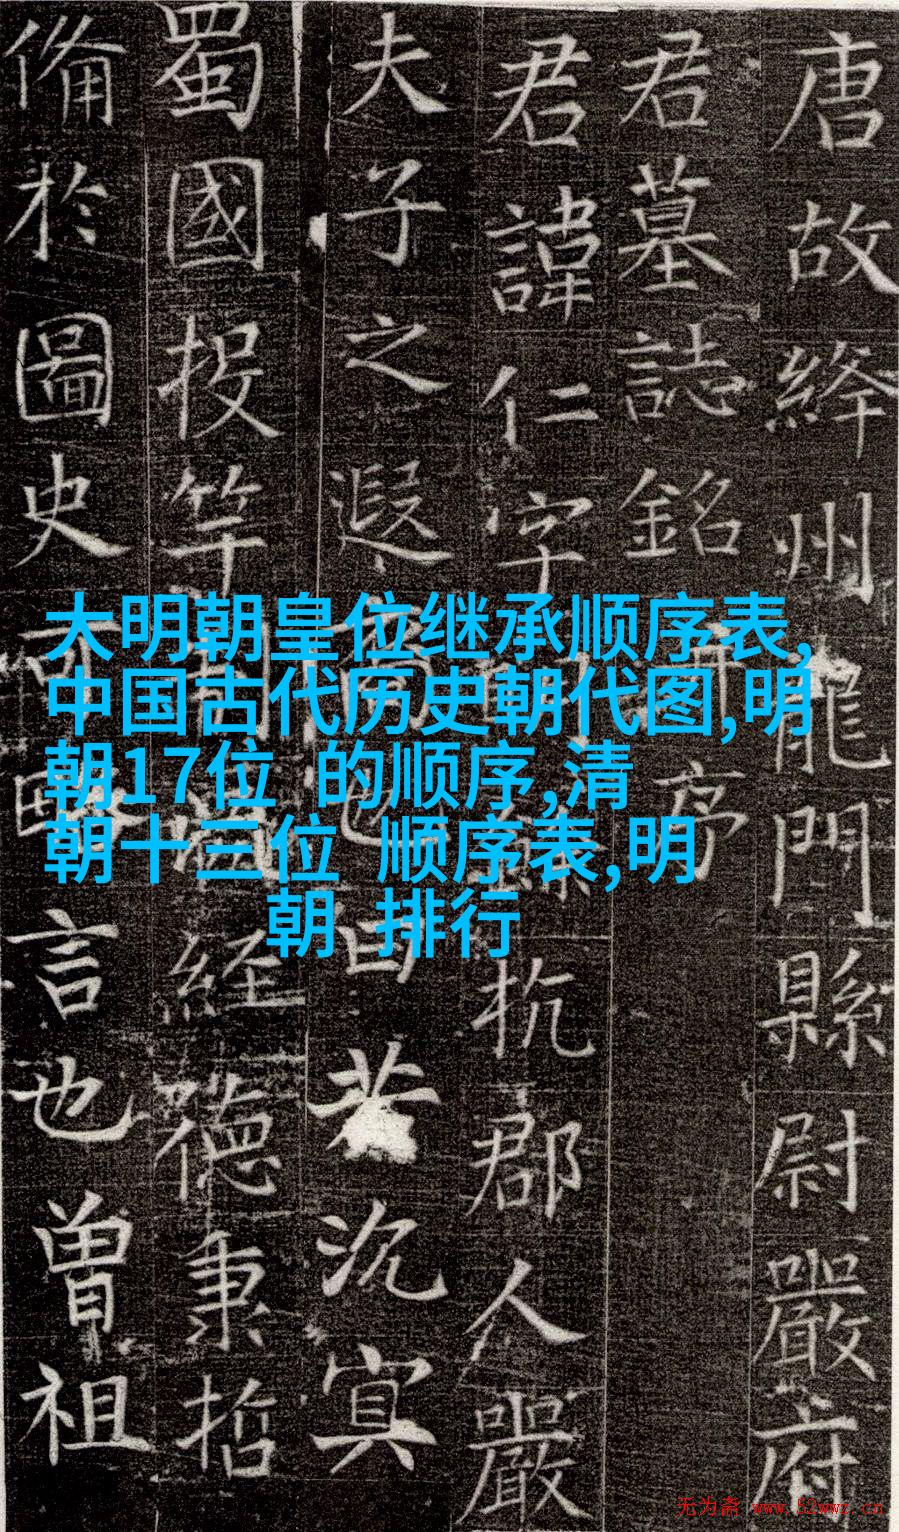 唐故絳州龍門縣尉嚴府
君墓誌銘并序
君諱仁字杭郡人嚴
夫子之遐裔也若沉冥
蜀國投竿經德秉哲
備於圖史可略言也曾祖
大明朝皇位继承顺序表,
中国古代历史朝代图,明
朝17位 的顺序,清
朝十三位 顺序表,明
朝 排行
无为斋 www.52wwz.cn